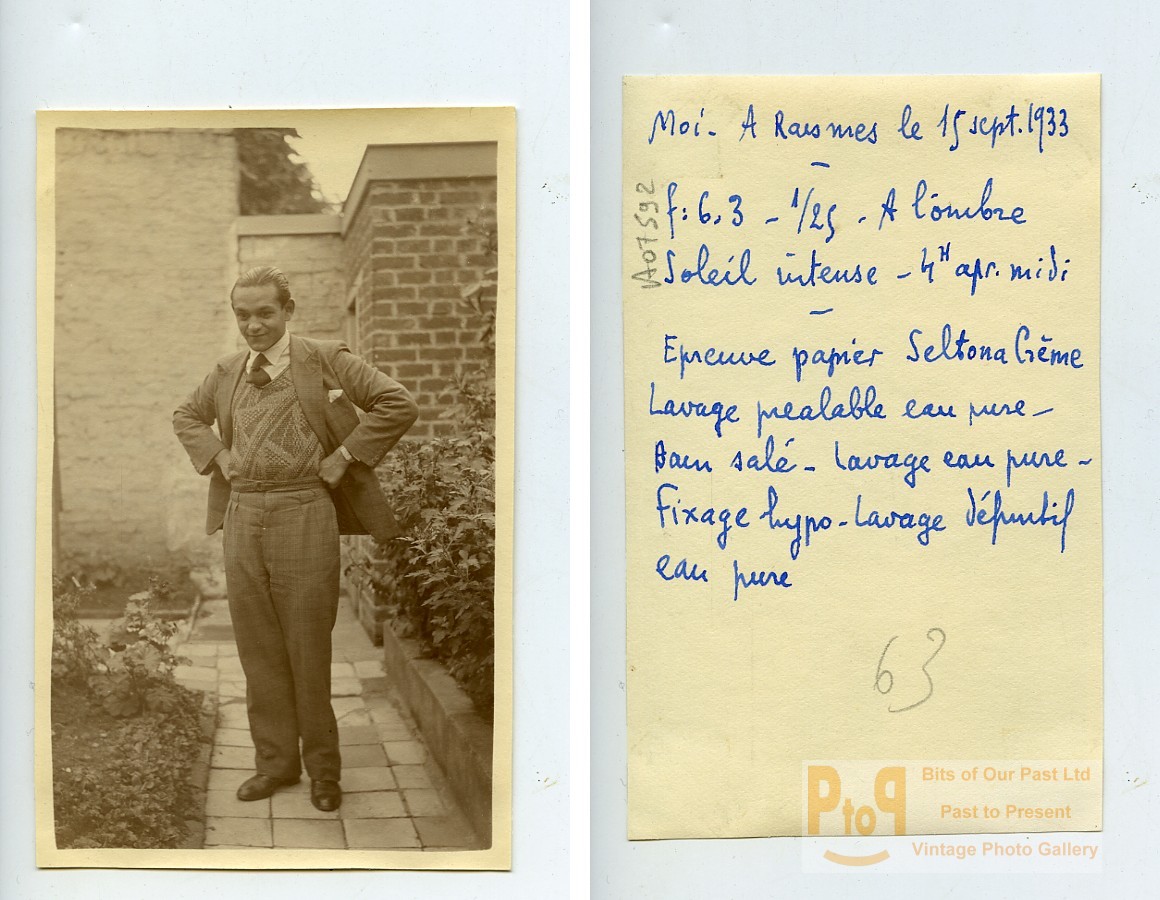 Moi - A Raismes le 15 sept. 1933
f: 6,3 - 1/25 - A l'ombre
Soleil intense - 4H apr. midi
Epreuve papier Seltona Crême
Lavage préalable eau pure -
Bain salé - Lavage eau pure -
Fixage hypo - Lavage définitif
eau pure
A07592
63
PtoP
Bits of Our Past Ltd
Past to Present
Vintage Photo Gallery